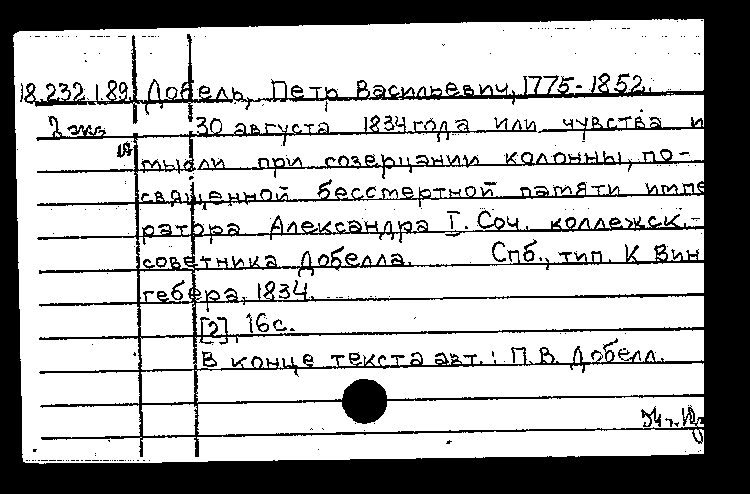 18.232.1.89. Добель, Петр Васильевич, 1775-1852.
2 экз 30 августа 1834 года или чувства и
мысли при созерцании колонны, по-
священной бессмертной памяти импе
ратора Александра I. Соч. коллежск.-
советника Добелла. Спб., тип. К Вин
гебера, 1834.
[2], 16 с.
В конце текста авт.: П.В. Добелл.